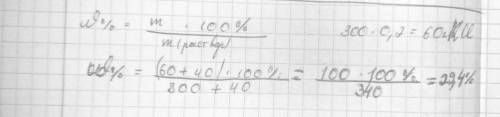 ω% = m · 100% / m(раствор) 300·0,2=60
ω% = (60+40)·100% / 300+40 = 100·100% / 340 = 29,4%